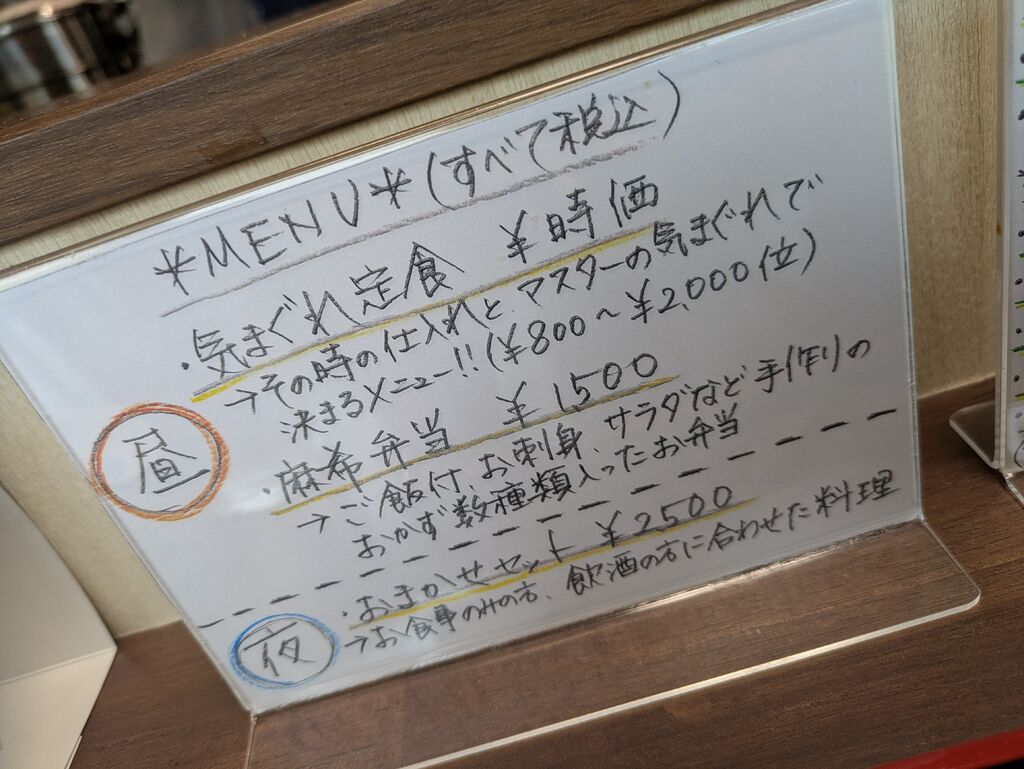 *MENU* (すべて税込)
・気まぐれ定食 ¥時価
→その時の仕入れとマスターの気まぐれで
決まるメニュー!!(¥800〜¥2,000位)
昼
・麻希弁当 ¥1,500
→ご飯付、お刺身、サラダなど手作りの
おかず数種類入ったお弁当
夜
・おまかせセット ¥2500
→お食事のみの方、飲酒の方に合わせた料理